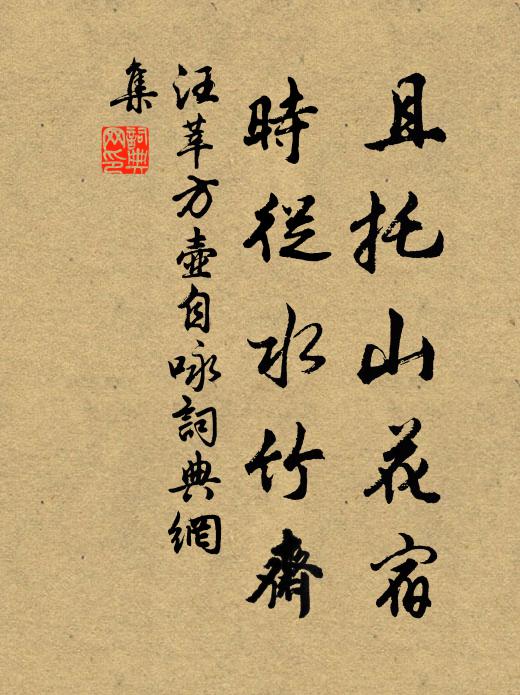 且托山花宿
時從水竹齋
汪莘方壺自咏詞典網
集
詞典網印